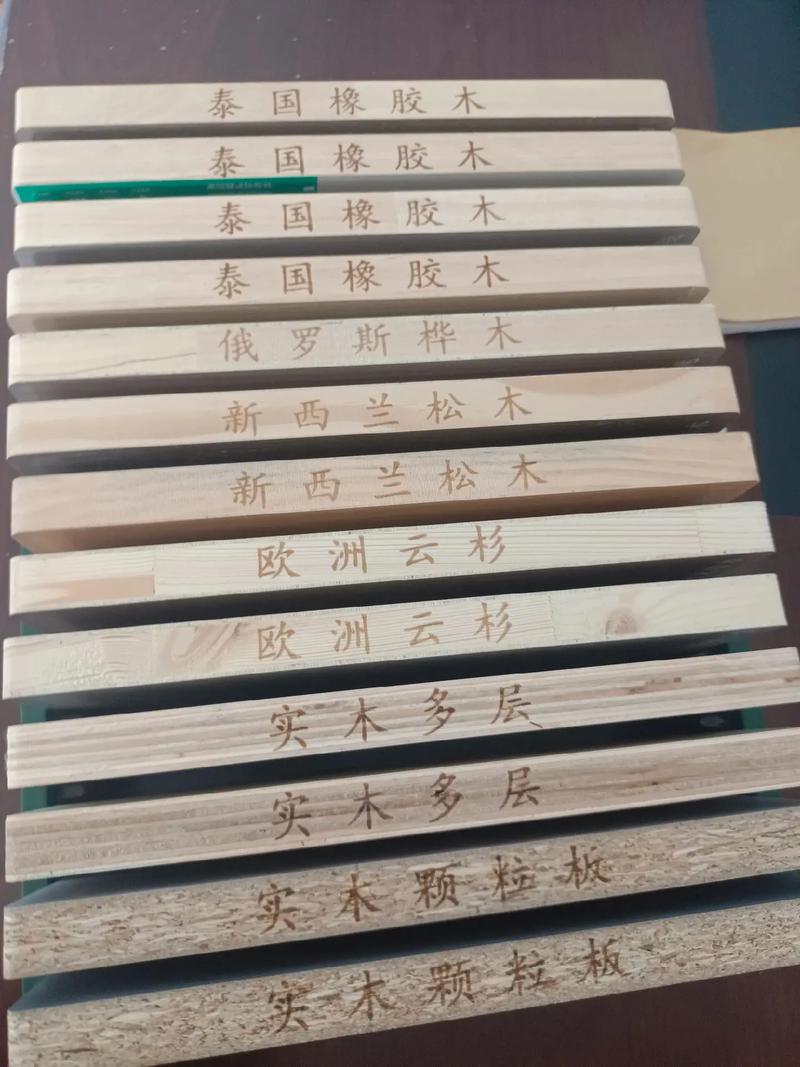 泰国橡胶木
泰国橡胶木
泰国橡胶木
泰国橡胶木
俄罗斯桦木
新西兰松木
新西兰松木
欧洲云杉
欧洲云杉
实木多层
实木多层
实木颗粒板
实木颗粒板